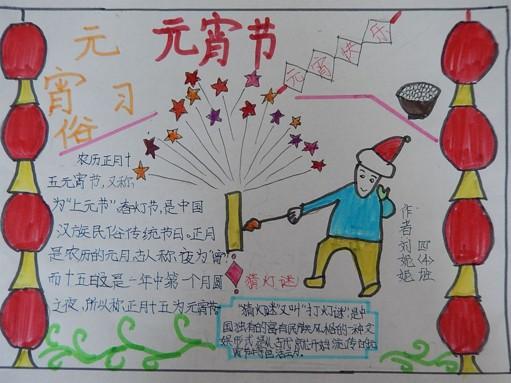 元宵节
元宵习俗
元宵快乐
农历正月十
五元宵节,又称
为“上元节”春灯节,是中国
汉族民俗传统节日。正月
是农历的元月,古人称夜为“宵”
而十五日又是一年中第一个月圆
之夜,所以称正月十五为元宵节
猜灯谜
“猜灯谜”又叫“打灯谜”是中
国独有的富有民族风格的一种文
娱形式,是从古代就开始流传的
四〈4〉班
作者刘妮妮